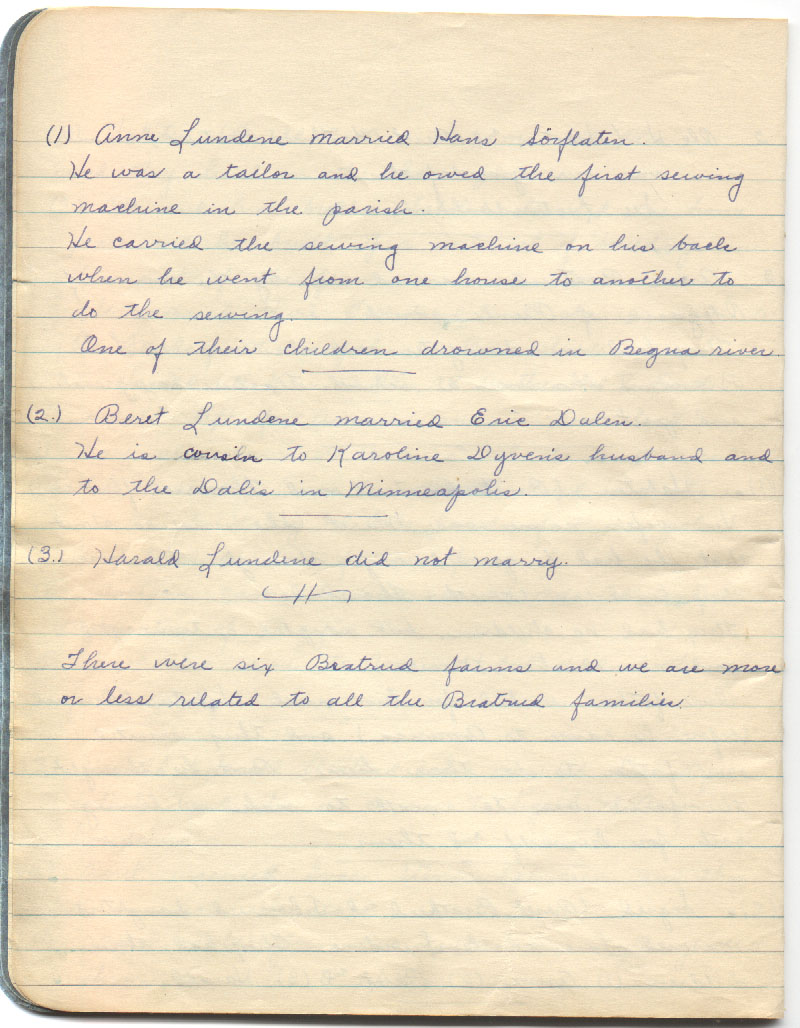 (1) Anne Lundene married Hans Sörflaten.
He was a tailor and he owed the first sewing
machine in the parish.
He carried the sewing machine on his back
when he went from one house to another to
do the sewing.
One of their children drowned in Begna river.
(2.) Beret Lundene married Eric Dalen.
He is cousin to Karoline Dyven's husband and
to the Dali's in Minneapolis.
(3.) Harald Lundene did not marry.
There were six Bratrud farms and we are more
or less related to all the Bratrud families.